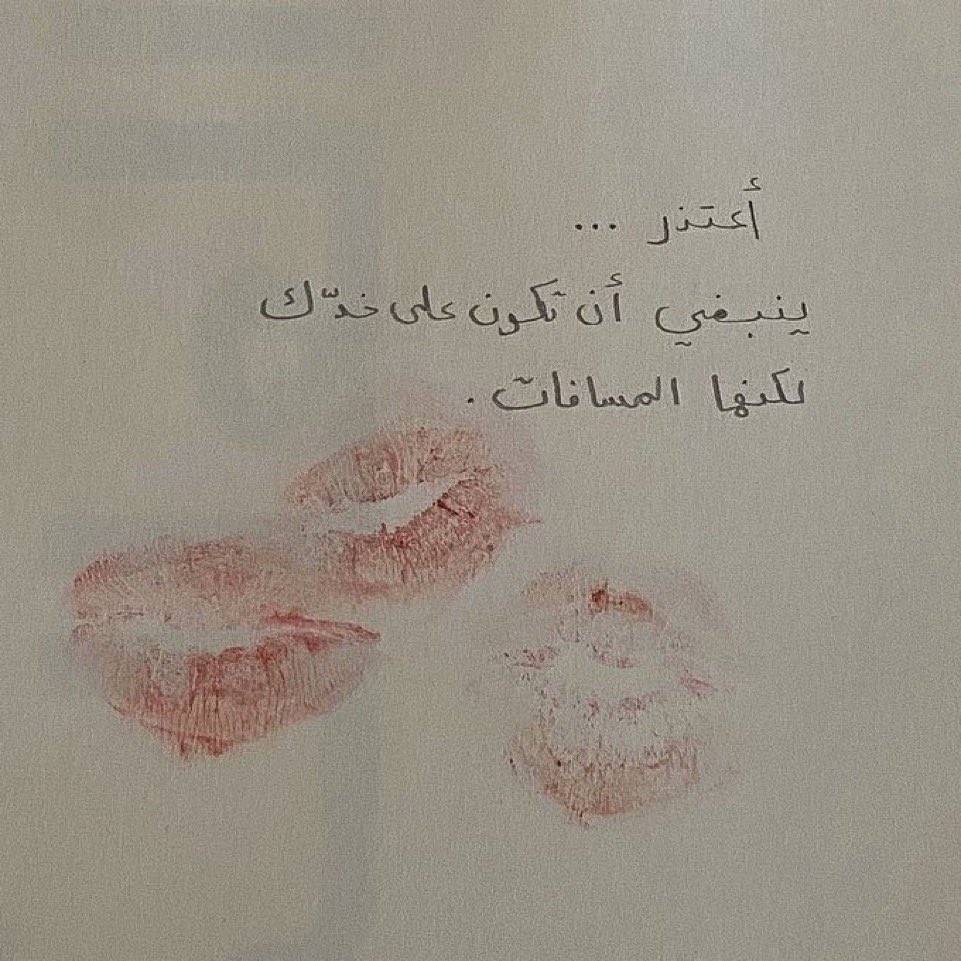 أعتذر ...
ينبغي أن تكون على خدّك
لكنها المسافات .